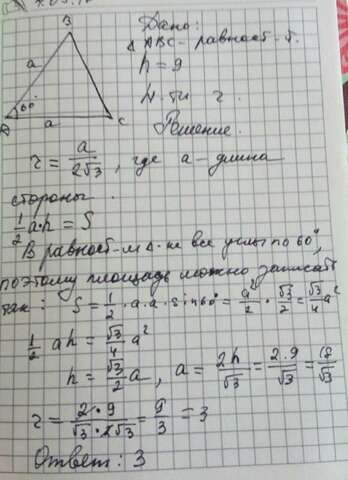 B
Дано:
Δ ABC - равност-й.
h = 9
a
60°
Н-ти r.
A
a
C
Решение.
r = a / 2√3, где a - длина
стороны.
1/2 a·h = S
В равност-м Δ-ке все углы по 60°,
поэтому площадь можно записать
так: S = 1/2 · a · a · sin60° = a²/2 · √3/2 = √3/4 a²
1/2 ah = √3/4 a²
h = √3/2 a, a = 2h/√3 = 2·9/√3 = 18/√3
r = 2·9 / √3·2√3 = 9/3 = 3
Ответ: 3